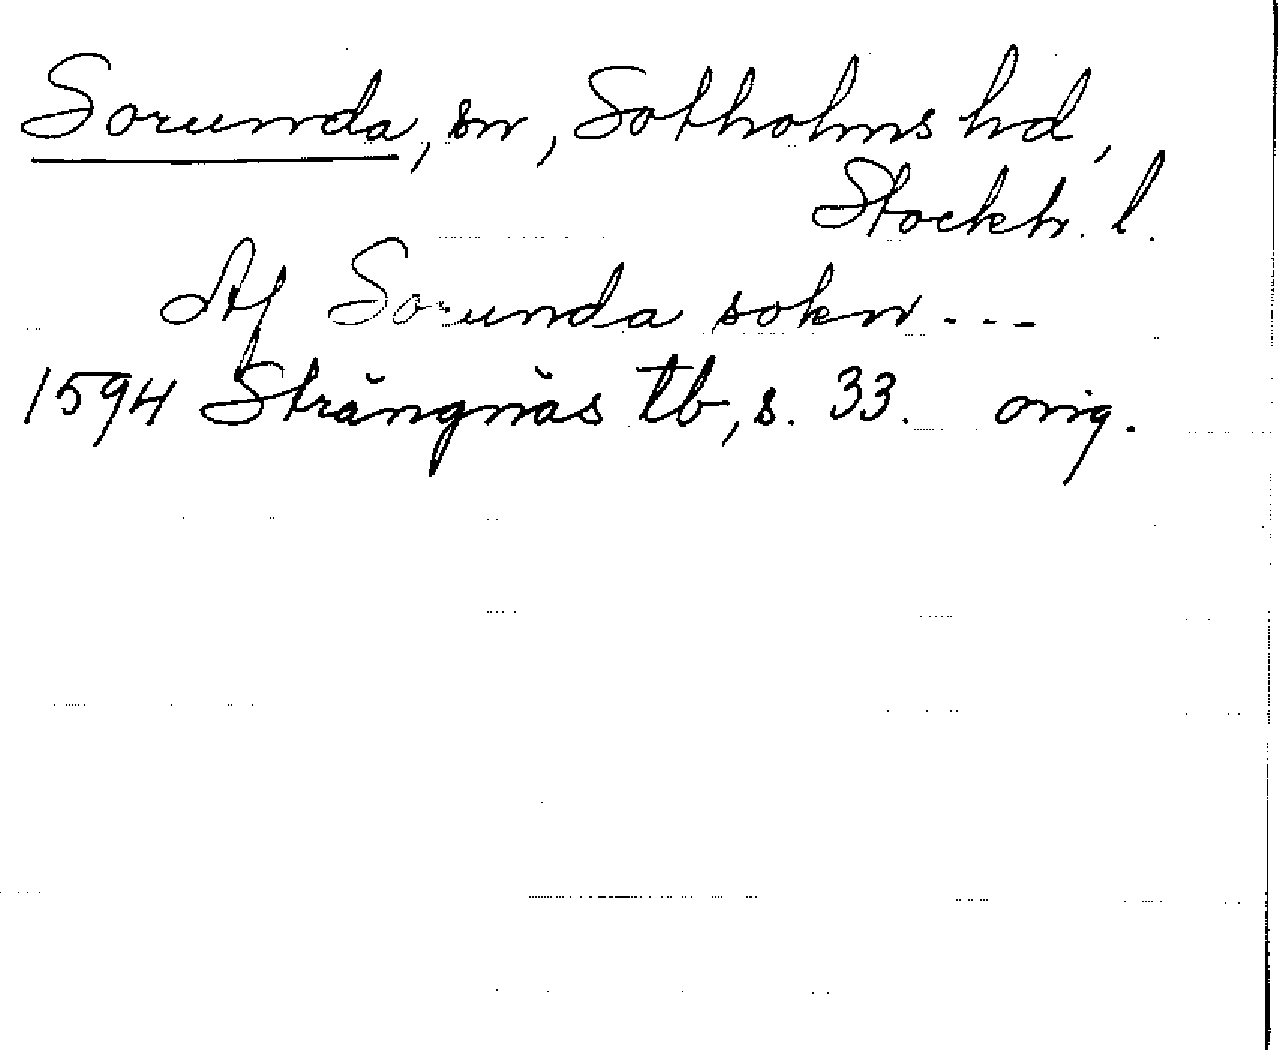 Sorunda, sn, Sotholms hd,
Stockh. l.
Af Sorunda sokn ---
1594 Strängnäs tb, s. 33. orig.